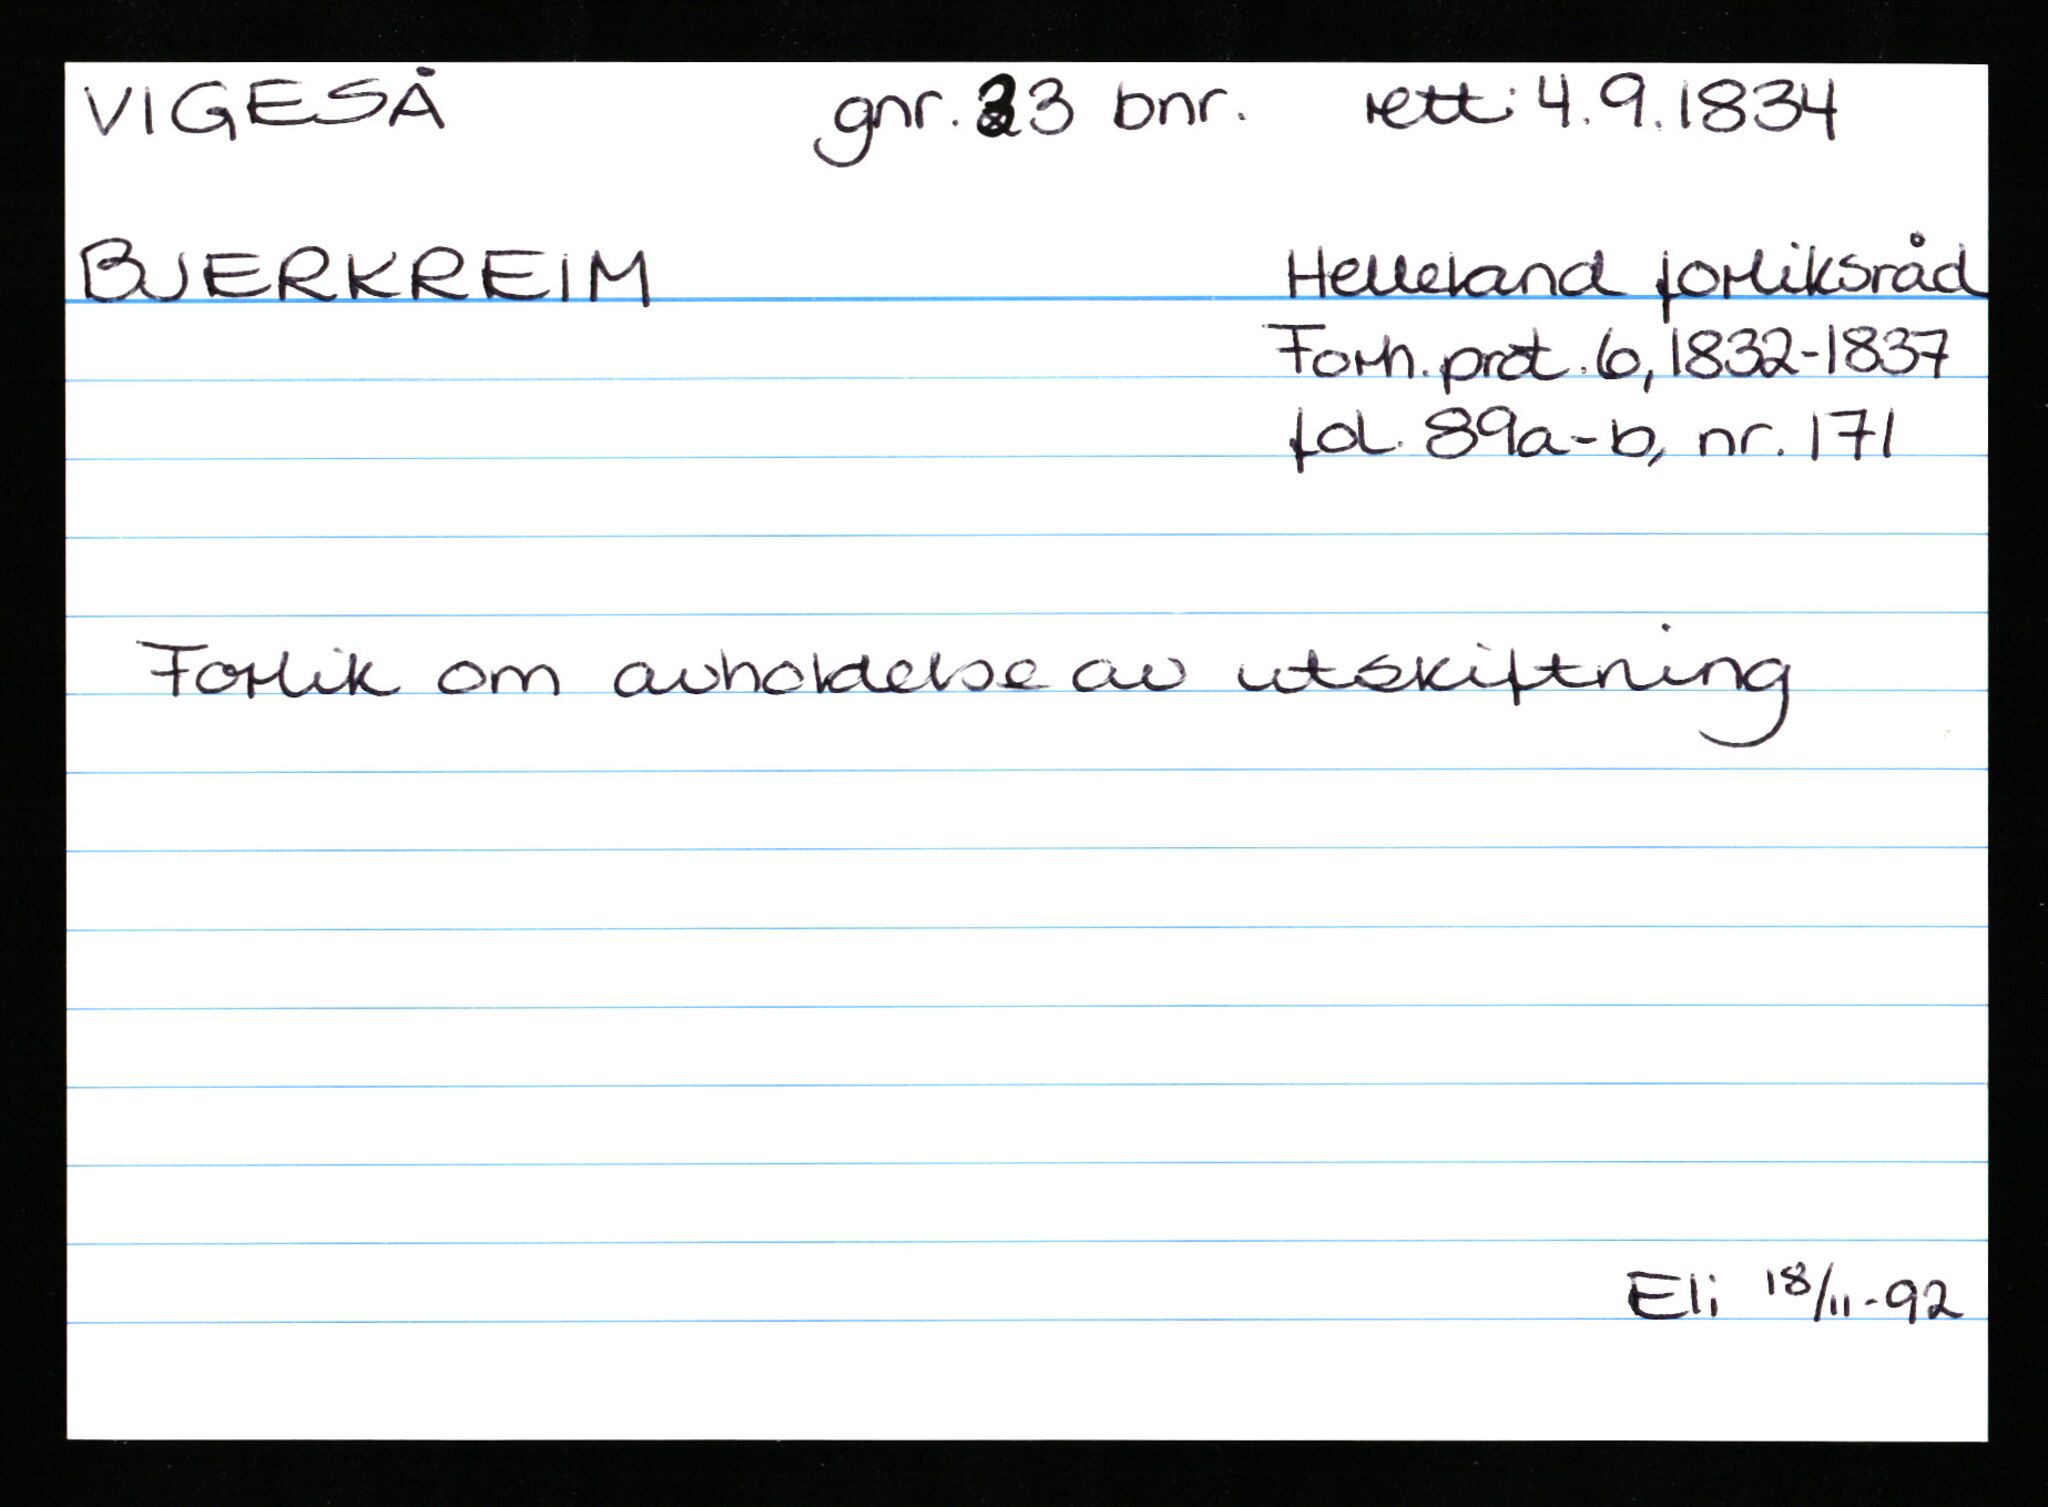 VIGESÅ gnr. 33 bnr. rett: 4.9.1834
BJERKREIM Helleland forliksråd
Forh. prot. 6, 1832-1837
fol. 89a-b, nr. 171
Forlik om avholdelse av utskiftning
Eli 18/11-92